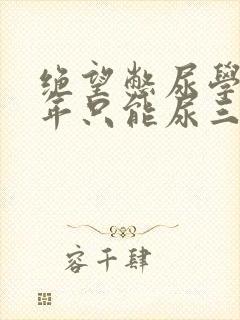 绝望憋尿學
年只能尿三
容千肆